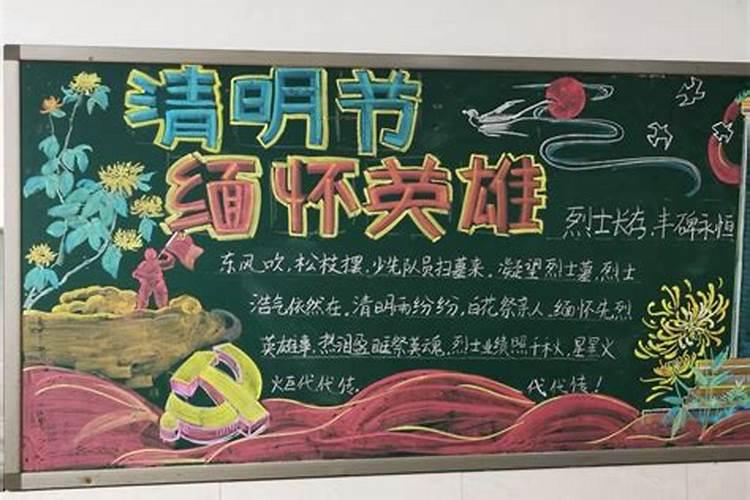 清明节
缅怀英雄
烈士长存,丰碑永恒
东风吹,松枝摆,少先队员扫墓来,凝望烈士墓,烈士
浩气依然在,清明雨纷纷,白花祭亲人,缅怀先烈
英雄事,热泪盈眶祭英魂,烈士业绩照千秋,星星火
炬代代传, 代代传!